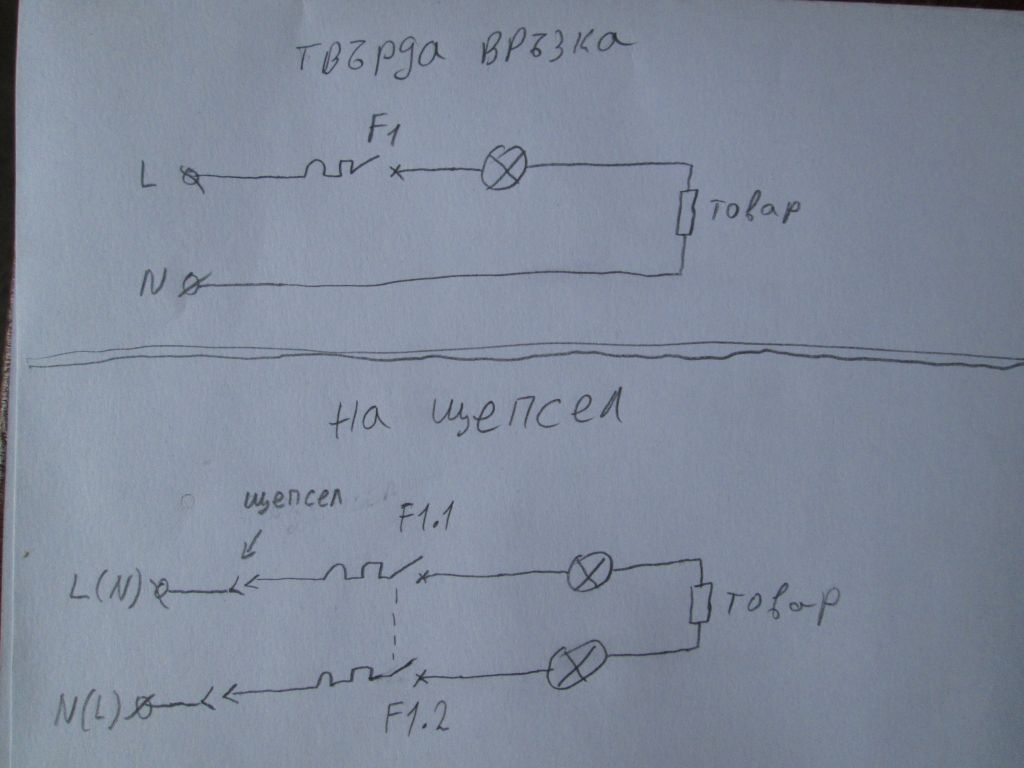 ТВЪРДА ВРЪЗКА
F1
L
товар
N
НА ЩЕПСЕЛ
щепсел
F1.1
L(N)
товар
N(L)
F1.2